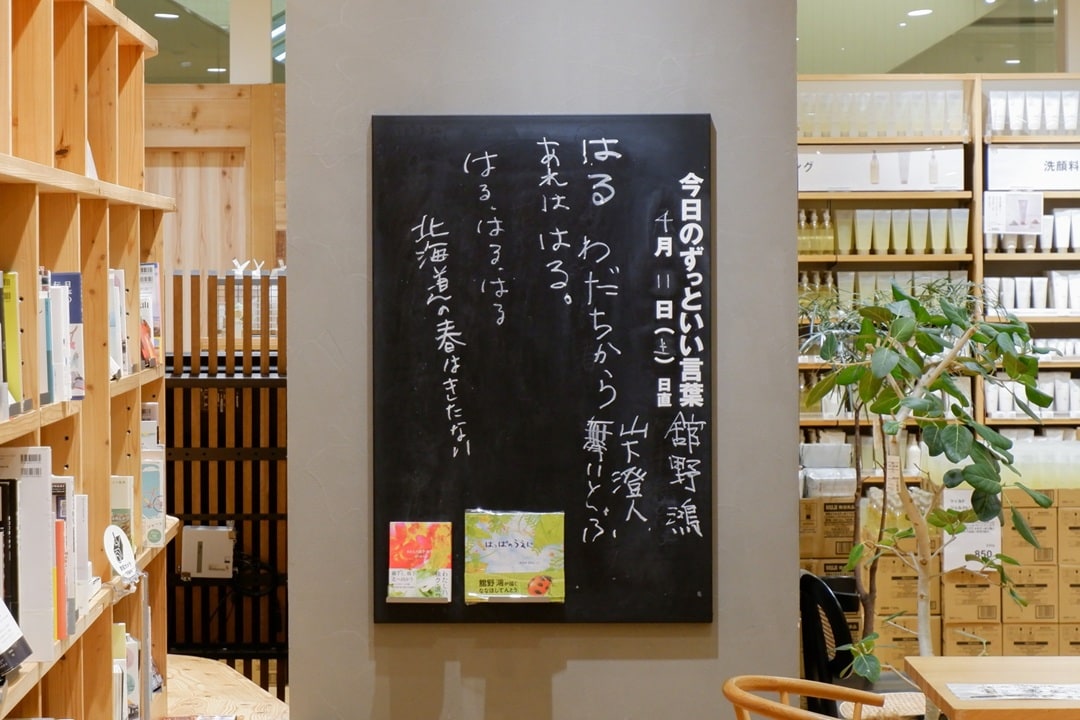 今日のずっといい言葉
4月11日(土) 日直
舘野鴻
山下澄人
はる わだちから
あれは はる。
はる、はる、はる
北海道の春はきたない
はっぱのうえに
舘野 鴻が描く
ななほしてんとう
ング
洗顔料
850